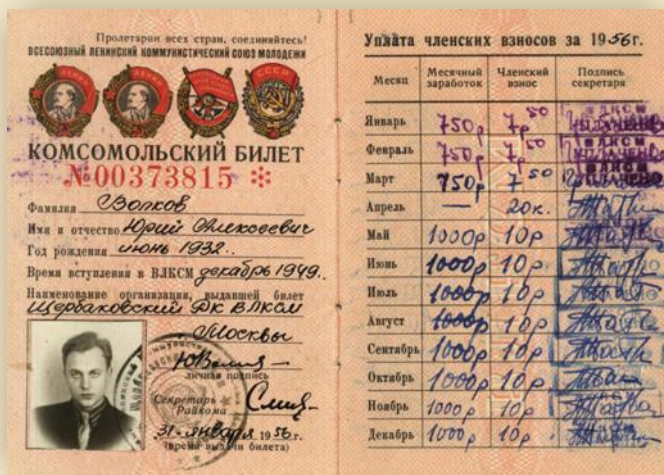 Пролетарии всех стран, соединяйтесь!
ВСЕСОЮЗНЫЙ ЛЕНИНСКИЙ КОММУНИСТИЧЕСКИЙ СОЮЗ МОЛОДЕЖИ
КОМСОМОЛЬСКИЙ БИЛЕТ
№00373815 *
Фамилия Волков
Имя и отчество Юрий Алексеевич
Год рождения июнь 1932.
Время вступления в ВЛКСМ декабрь 1949.
Наименование организации, выдавшей билет
Щербаковский РК ВЛКСМ
г. Москвы
личная подпись
Секретарь
Райкома
31 января 1956 г.
(время выдачи билета)
Уплата членских взносов за 1956г.
Месяц Месячный заработок Членский взнос Подпись секретаря
Январь 750р 7р 50 ВЛКСМ УПЛАЧЕНО
Февраль 750р 7р 50 ВЛКСМ УПЛАЧЕНО
Март 750р 7 50 ВЛКСМ УПЛАЧЕНО
Апрель — 20к.
Май 1000р 10р
Июнь 1000р 10р
Июль 1000р 10р
Август 1000р 10р
Сентябрь 1000р 10р
Октябрь 1000р 10р
Ноябрь 1000р 10р
Декабрь 1000р 10р